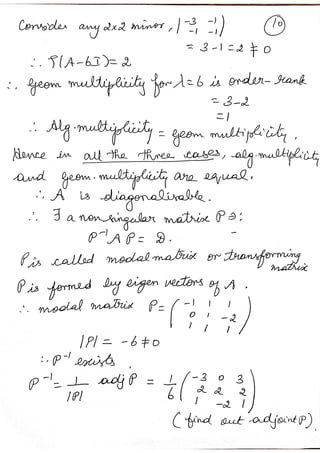 (10)
Consider any 2x2 minor, | -3 -1 |
| -1 -1 |
= 3-1 = 2 ≠ 0
∴ ρ(A-6I) = 2
∴ Geom multiplicity for λ=6 is order-rank
= 3-2
= 1
∴ Alg.multiplicity = geom multiplicity.
Hence in all the three cases, alg.multiplicity
and geom. multiplicity are equal.
∴ A is diagonalisable.
∴ ∃ a non singular matrix P ∋:
P⁻¹ A P = D.
P is called modal matrix or transforming
matrix
P is formed by eigen vectors of A.
∴ modal matrix P = ( -1 1 1
0 1 -2
1 1 1 )
|P| = -6 ≠ 0
∴ P⁻¹ exists
P⁻¹ = 1/|P| adj P = 1/6 ( -3 0 3
2 2 2
1 -2 1 )
(find out adjoint P)